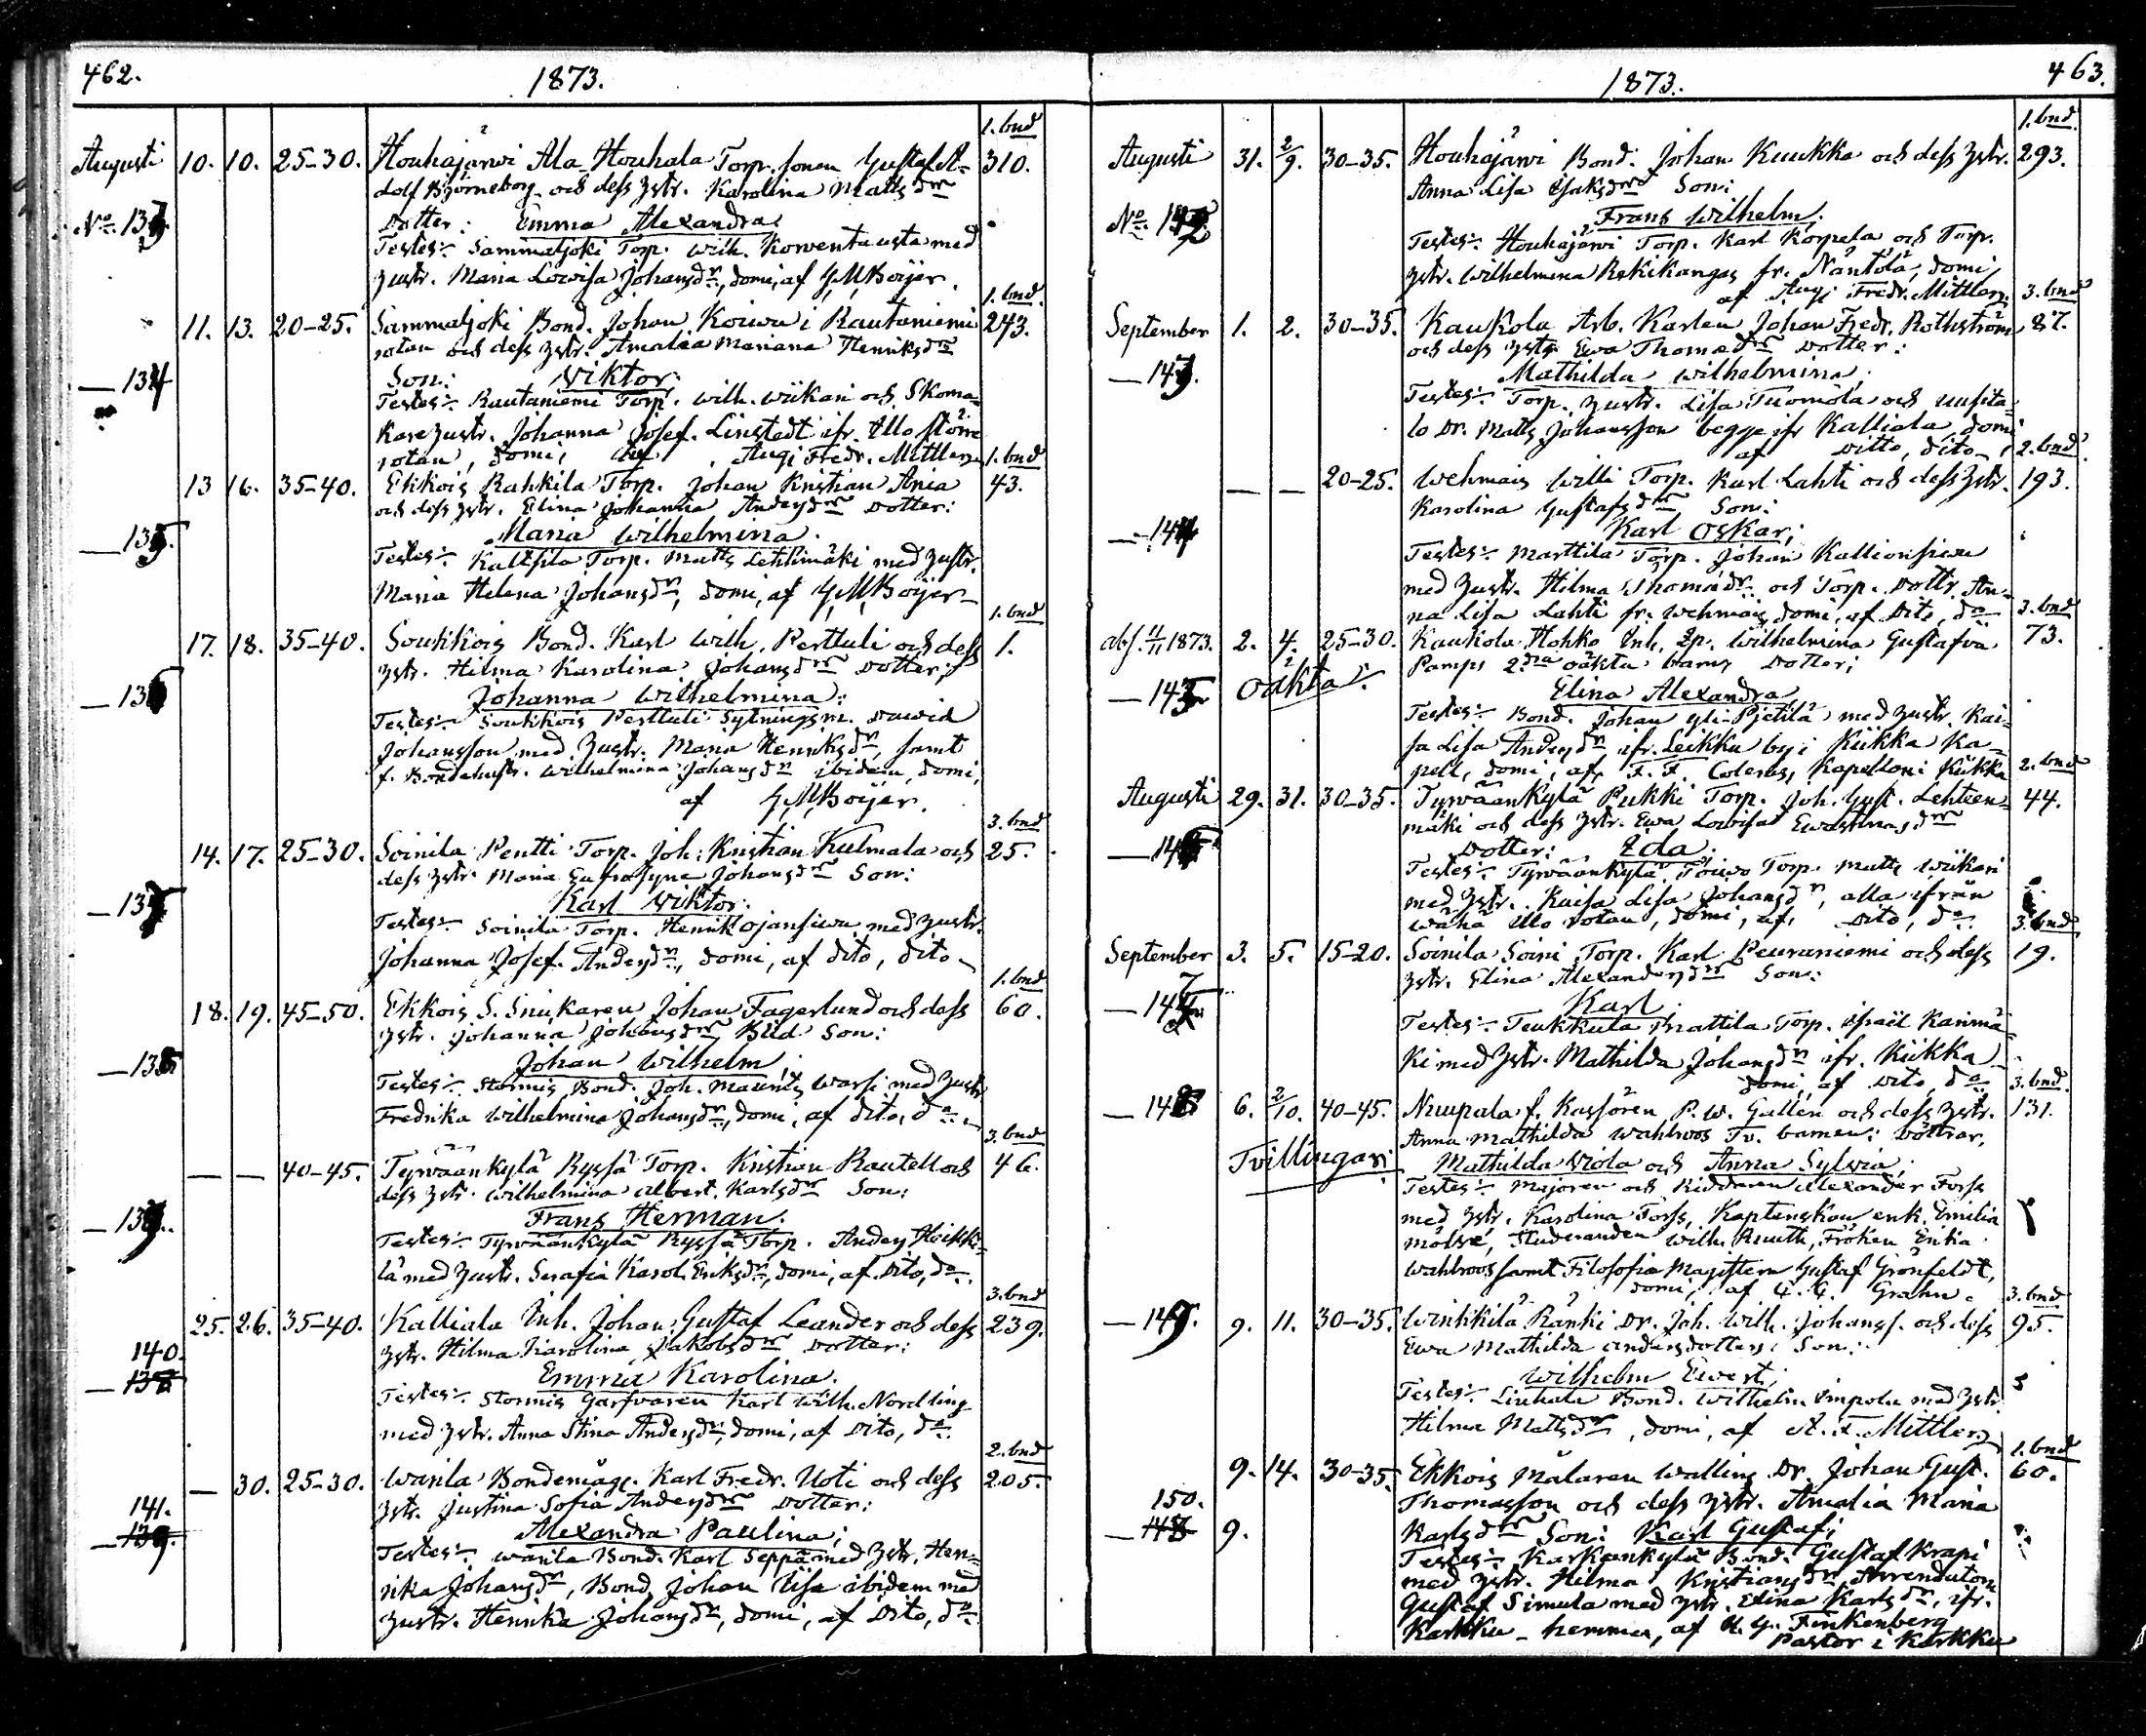 462.
1873.
1. bnd
Augusti 10. 10. 25-30. Houhajärwi Ala-Houhala Torp. sonen Gustaf A- 310.
dolf Björneborg och dess hstr. Karolina Mattsdr
Dotter: Emma Alexandra.
No. 133
Testes: Sammaljoki Torp. Wilh. Korwentausta med
hustr. Maria Lowisa Johansdr, domi, af G M Boijer.
1. bnd.
11. 13. 20-25. Sammaljoki Bond. Johan Koiwu i Rautaniemi 243.
rotan och dess hstr. Amalia Mariana Henriksdr
— 134
Son: Wiktor;
Testes: Rautaniemi Torp. Wilh. Wiikari och Skoma-
kare hustr. Johanna Josef. Linstedt ifr. Illo större
rotan, domi, af Augi Fredr. Mittler
1. bnd
13 16. 35-40. Ekkois Rahkila Torp. Johan Kristian Ania 43.
och dess hstr. Elina Johanna Andersdr Dotter:
— 135.
Maria Wilhelmina.
Testes: Kaltsila Torp. Matts Lehtimäki med hustr.
Maria Helena Johansdr, domi, af G M Boijer
1. bnd
17. 18. 35-40. Soukkois Bond. Karl Wilh. Perttuli och dess 1.
hstr. Hilma Karolina Johansdr Dotter;
— 136
Johanna Wilhelmina:
Testes: Soukkois Perttuli Sytningsm. Dawid
Johansson med hustr. Maria Henriksdr, samt
f. Bondehustr. Wilhelmina Johansdr ibidem, domi,
af G M Boijer.
3. bnd
14. 17. 25-30. Soinila Pentti Torp. Joh. Kristian Kulmala och 25.
dess hstr. Maria Eufrosyne Johansdr Son:
— 137
Karl Wiktor.
Testes: Soinila Torp. Henrik Ojansiwu med hustr.
Johanna Josef. Andersdr, domi, af dito, dito
1. bnd
18. 19. 45-50. Ekkois S. Snikaren Johan Fagerlund och dess 60.
hstr. Johanna Johansdr Son:
— 138
Johan Wilhelm.
Testes: Stormis Bond. Joh. Maurits Warsi med hustr
Fredrika Wilhelmina Johansdr, domi, af dito, do
3. bnd
— — 40-45. Tyrwäänkylä Ryssä Torp. Kristian Rautell och 46.
dess hstr. Wilhelmina Albert. Karlsdr Son:
— 139.
Frans Herman.
Testes: Tyrwäänkylä Ryssä Torp. Anders Heikki-
lä med hustr. Serafia Karol. Eriksdr, domi, af dito, do
3. bnd
25. 26. 35-40. Kalliala Inh. Johan Gustaf Leander och dess 239.
hstr. Hilma Karolina Jakobsdr Dotter:
140.
— 138
Emma Karolina.
Testes: Stormis Garfvaren Karl Wilh. Nordling
med hstr. Anna Stina Andersdr, domi, af dito, do
2. bnd
— 30. 25-30. Warila Bondemåg. Karl Fredr. Uoti och dess 205.
hstr. Justina Sofia Andersdr Dotter:
141.
— 139.
Alexandra Paulina;
Testes: Warila Bond. Karl Seppä med hstr. Hen-
rika Johansdr, Bond. Johan ibidem med
hustr. Henrika Johansdr, domi, af dito, do
463.
1873.
1. bnd.
Augusti 31. 2/9. 30-35. Houhajärwi Bond. Johan Kuukka och dess hstr. 293.
Anna Lisa Isaksdr Son:
No. 142
Frans Wilhelm.
Testes: Houhajärwi Torp. Karl Korpela och Torp.
hstr. Wilhelmina Rekikangas fr. Näntölä, domi,
af Augi Fredr. Mittler
3. bnd
September 1. 2. 30-35. Kaukola Arb. Karlen Johan Fredr. Rothström 87.
och dess hstr Ewa Thomasdr Dotter:
— 143.
Mathilda Wilhelmina.
Testes: Torp. hustr. Lisa Tuomola och
Dr. Matts Johansson begge ifr Kalliala domi
af ditto, dito
2. bnd.
— — 20-25. Wehmais Willi Torp. Karl Lahti och dess hstr. 193.
Karolina Gustafsdr Son:
— 144
Karl Oskar;
Testes: Marttila Torp. Johan Kallionsiwu
med hustr. Hilma Thomasdr. och Torp. Dottr. An-
na Lisa Lahti fr. Wehmais, domi, af Dito, do
3. bnd
abs. 4/11 1873. 2. 4. 25-30. Kaukola Hohko Inh. Ep. Wilhelmina Gustafva 73.
Pamps 2dra oäkta barns Dotter;
— 145 Oäkta:
Elina Alexandra
Testes: Bond. Johan Yli-Pietilä med hustr. Kai-
sa Lisa Andersdr ifr. Leikku by i Kiikka Ka-
pell, domi, af F. F. Colerus, Kapellan i Kiikka
2. bnd
Augusti 29. 31. 30-35. Tyrwäänkylä Pukki Torp. Joh. Gust. Lehteen- 44.
mäki och dess hstr. Ewa Lowisa
— 146
Dotter: Ida.
Testes: Tyrwäänkylä Touwo Torp. Matts Wiikari
med hstr. Kaisa Lisa Johansdr, alla ifrån
Wähä Illo rotan, domi, af, dito, do
3. bnd
September 3. 5. 15-20. Soinila Soini Torp. Karl Peuraniemi och dess 19.
hstr. Elina Alexandersdr Son:
— 147
Karl.
Testes: Teukkula Mattila Torp. Israël Karimä-
ki med hstr. Mathilda Johansdr ifr. Kiikka
domi, af dito, do
3. bnd.
— 148 6. 2/10. 40-45. Nuupala f. Kassören P. W. Gallén och dess hstr. 131.
Anna Mathilda Wahlroos Tv. barnen: Döttrar,
Tvillingar: Mathilda Viola och Anna Sylvia;
Testes: Majoren och Riddaren Alexander Forss
med hstr. Karolina Forss, Kaptenskan enk. Emilia
Studeranden Wilh. Ruuth, Fröken Erika
Wahlroos samt Filosofie Magistern Gustaf Grönfeldt,
domi, af G. G. Grahn.
3. bnd
— 149. 9. 11. 30-35. Winkkilä Ränki Dr. Joh. Wilh. Johanss. och dess 95.
Ewa Mathilda Andersdotters Son:
Wilhelm Ewert;
Testes: Liuhala Bond. Wilhelm Impola med hstr
Hilma Mattsdr, domi, af A. F. Mittler
1. bnd
9. 14. 30-35. Ekkois Målaren Walling Dr. Johan Gust. 60.
Thomasson och dess hstr. Amalia Maria
150.
— 148 9. Karlsdr Son: Karl Gustaf;
Testes: Karkunkylä Bond. Gustaf Krapi
med hstr. Hilma Kristiansdr Arrendatorn
Gustaf Simula med hstr. Elina Karlsdr, ifr.
Karkku - hemma, af K. G. Finkenberg
Pastor i Karkku